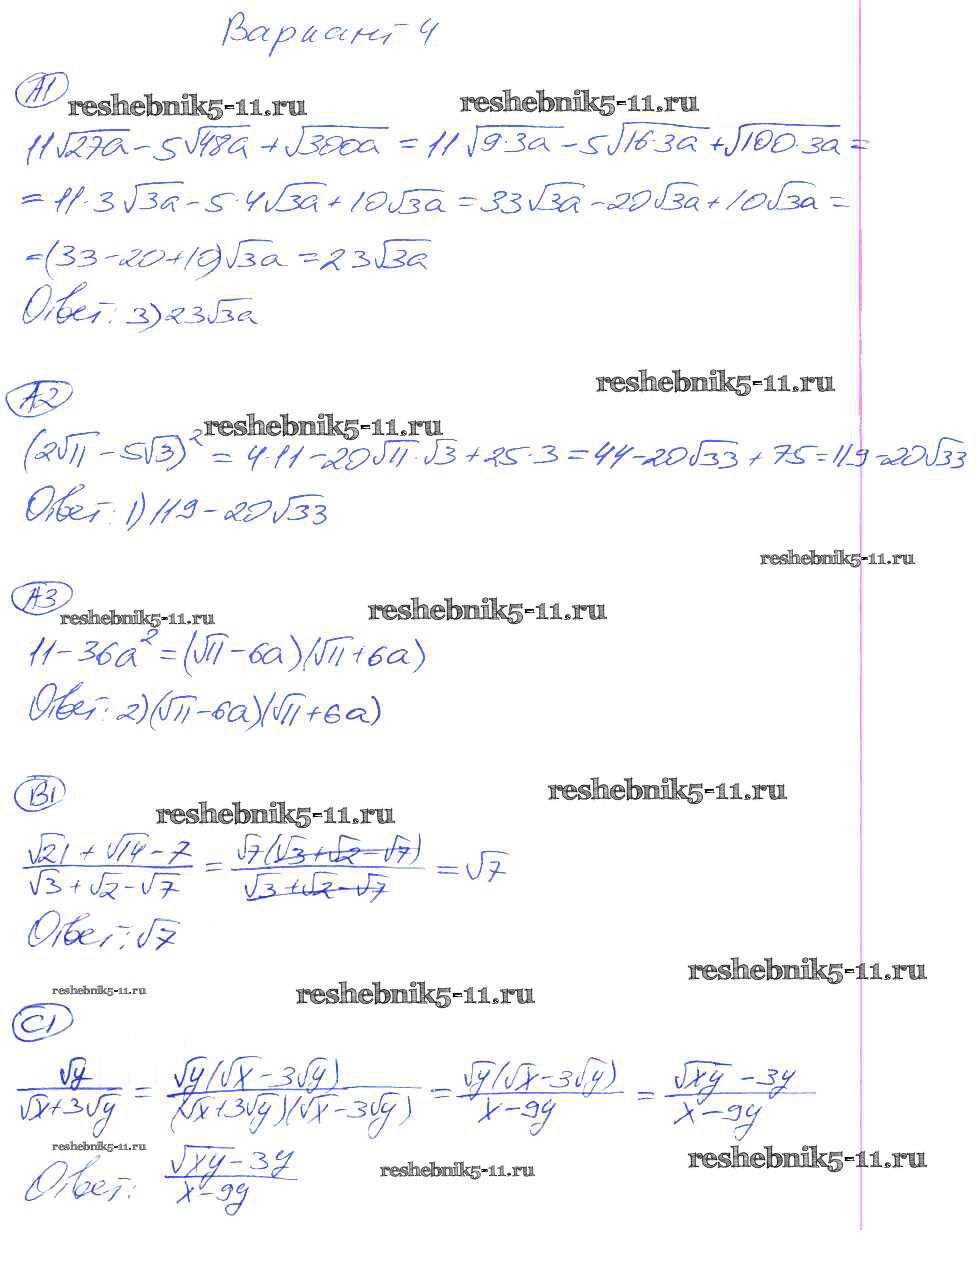 Вариант 4
А1
reshebnik5-11.ru reshebnik5-11.ru
11√27a - 5√48a + √300a = 11√9·3a - 5√16·3a + √100·3a =
= 11·3√3a - 5·4√3a + 10√3a = 33√3a - 20√3a + 10√3a =
= (33 - 20 + 10)√3a = 23√3a
Ответ: 3) 23√3a
reshebnik5-11.ru
А2
reshebnik5-11.ru
(2√11 - 5√3)² = 4·11 - 20√11·√3 + 25·3 = 44 - 20√33 + 75 = 119 - 20√33
Ответ: 1) 119 - 20√33
reshebnik5-11.ru
А3
reshebnik5-11.ru reshebnik5-11.ru
11 - 36a² = (√11 - 6a)(√11 + 6a)
Ответ: 2) (√11 - 6a)(√11 + 6a)
В1
reshebnik5-11.ru reshebnik5-11.ru
(√21 + √14 - 7)/(√3 + √2 - √7) = √7(√3 + √2 - √7)/(√3 + √2 - √7) = √7
Ответ: √7
reshebnik5-11.ru reshebnik5-11.ru reshebnik5-11.ru
С1
√y/(√x + 3√y) = √y(√x - 3√y)/((√x + 3√y)(√x - 3√y)) = √y(√x - 3√y)/(x - 9y) = (√xy - 3y)/(x - 9y)
reshebnik5-11.ru reshebnik5-11.ru reshebnik5-11.ru
Ответ: (√xy - 3y)/(x - 9y)